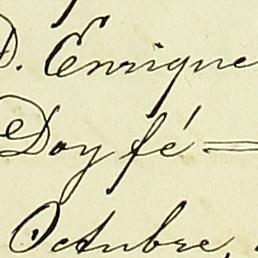 D. Enrique
Doy fé =
Octubre,